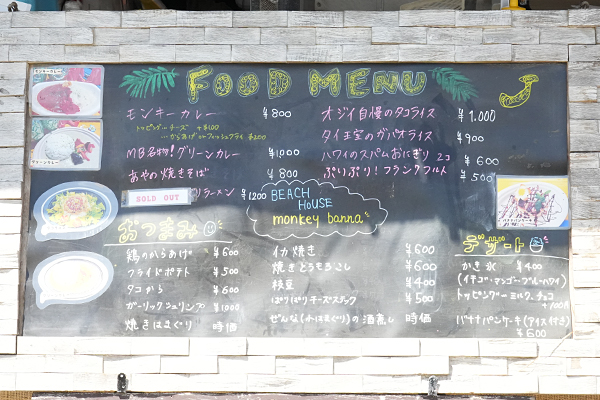 FOOD MENU
モンキーカレー ¥800
トッピング…チーズ +¥100
MB名物！グリーンカレー ¥1000
あやの焼きそば ¥800
SOLD OUT
ラーメン ¥1200
オジイ自慢のタコライス ¥1,000
タイ王宮のガパオライス ¥900
ハワイのスパムおにぎり 2コ ¥600
ぷりぷり！フランクフルト ¥500
BEACH HOUSE
monkey banna
おつまみ
鶏のからあげ ¥600
フライドポテト ¥500
タコから ¥600
ガーリックシュリンプ ¥1000
焼きはまぐり 時価
イカ焼き ¥600
焼きとうもろこし ¥600
枝豆 ¥400
ぱりぱりチーズスティック ¥500
ぜんな(小はまぐり)の酒蒸し 時価
デザート
かき氷 ¥400
(イチゴ・マンゴー・ブルーハワイ)
トッピング…ミルク、チョコ
+100円
バナナパンケーキ(アイス付き)
¥600